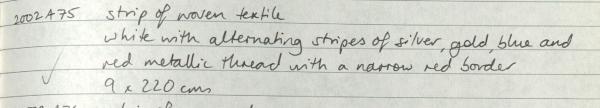 2002A75 strip of woven textile
white with alternating stripes of silver, gold, blue and
red metallic thread with a narrow red border
✓ 9 x 220 cms